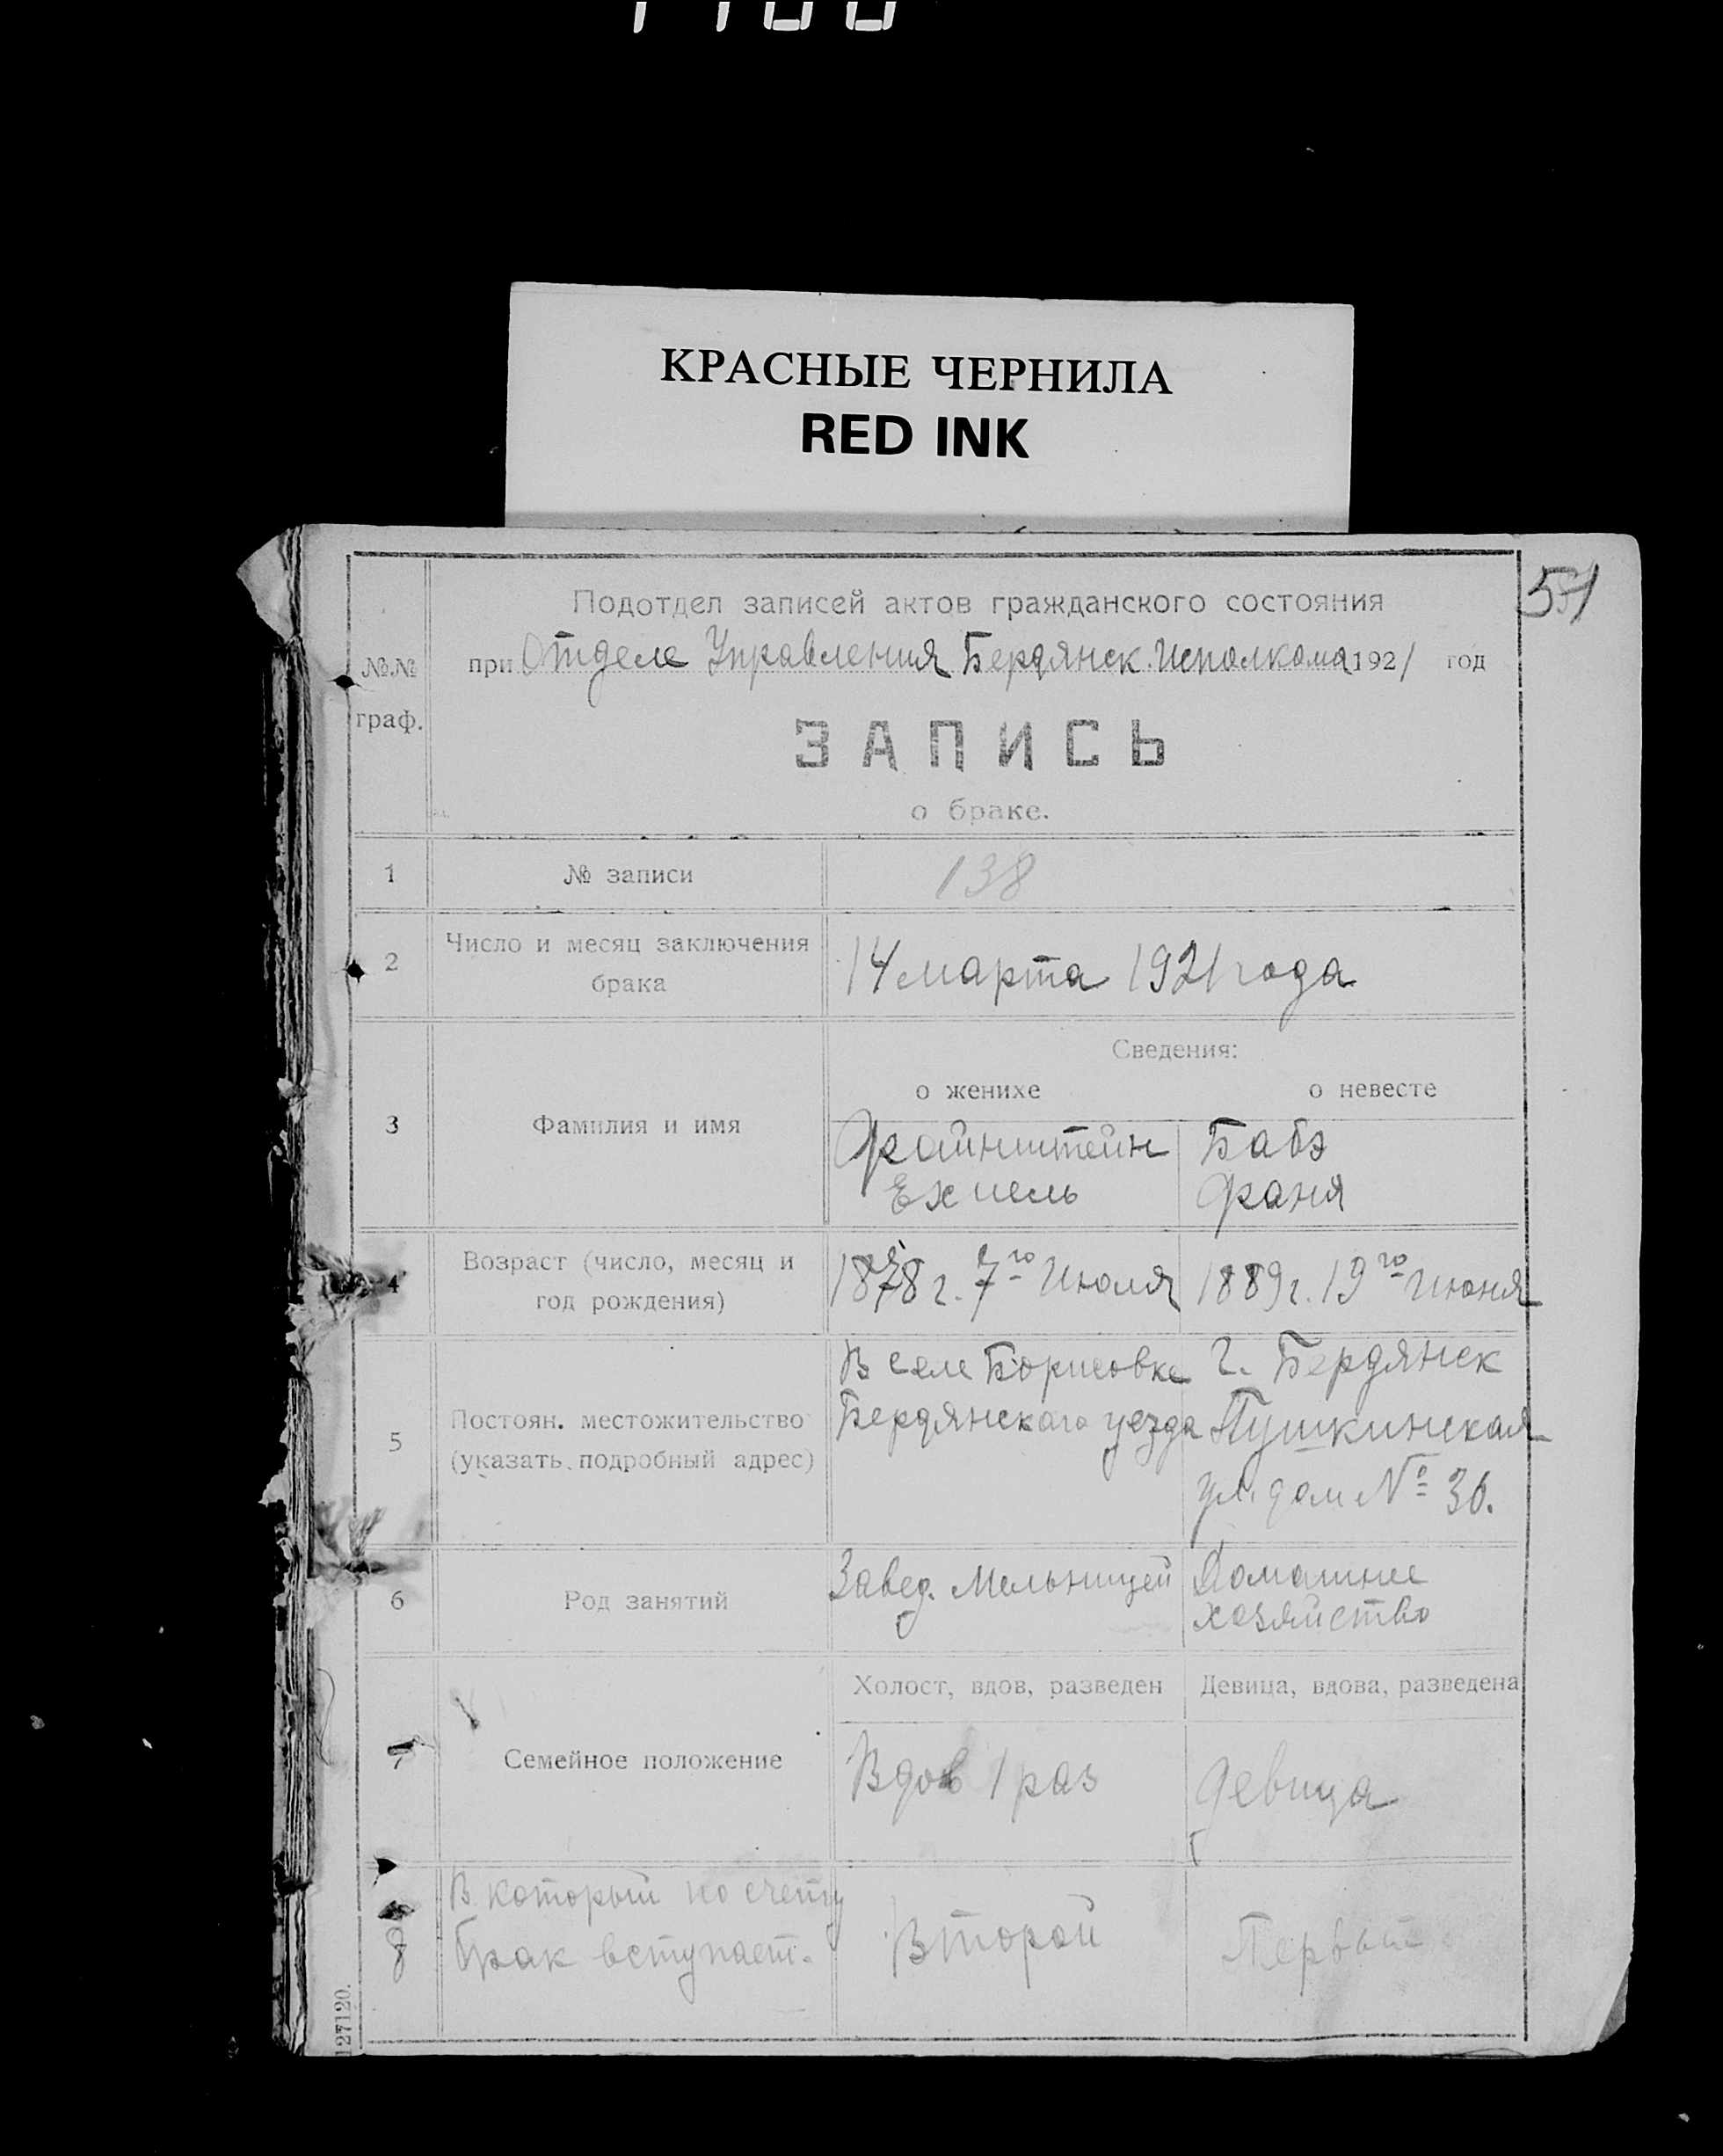 КРАСНЫЕ ЧЕРНИЛА
RED INK
51
Подотдел записей актов гражданского состояния
№№ граф.
при Отделе Управления Бердянск. Исполкома 1921 год
ЗАПИСЬ
о браке.
1 № записи 138
2 Число и месяц заключения брака
14 марта 1921 года
Сведения:
о женихе о невесте
3 Фамилия и имя
Файнштейн Бабэ
Ехиель Фаня
4 Возраст (число, месяц и год рождения)
1878 г. 7го Июля 1889 г. 19го Июня
5 Постоян. местожительство (указать подробный адрес)
В селе Борисовке г. Бердянск
Бердянскаго уезда Пушкинская
ул. дом № 36.
6 Род занятий
Завед. Мельницей Домашнее
хозяйство
Холост, вдов, разведен Девица, вдова, разведена
7 Семейное положение
Вдов 1 раз девица
8 В который по счету
брак вступает.
Второй Первый
127120.